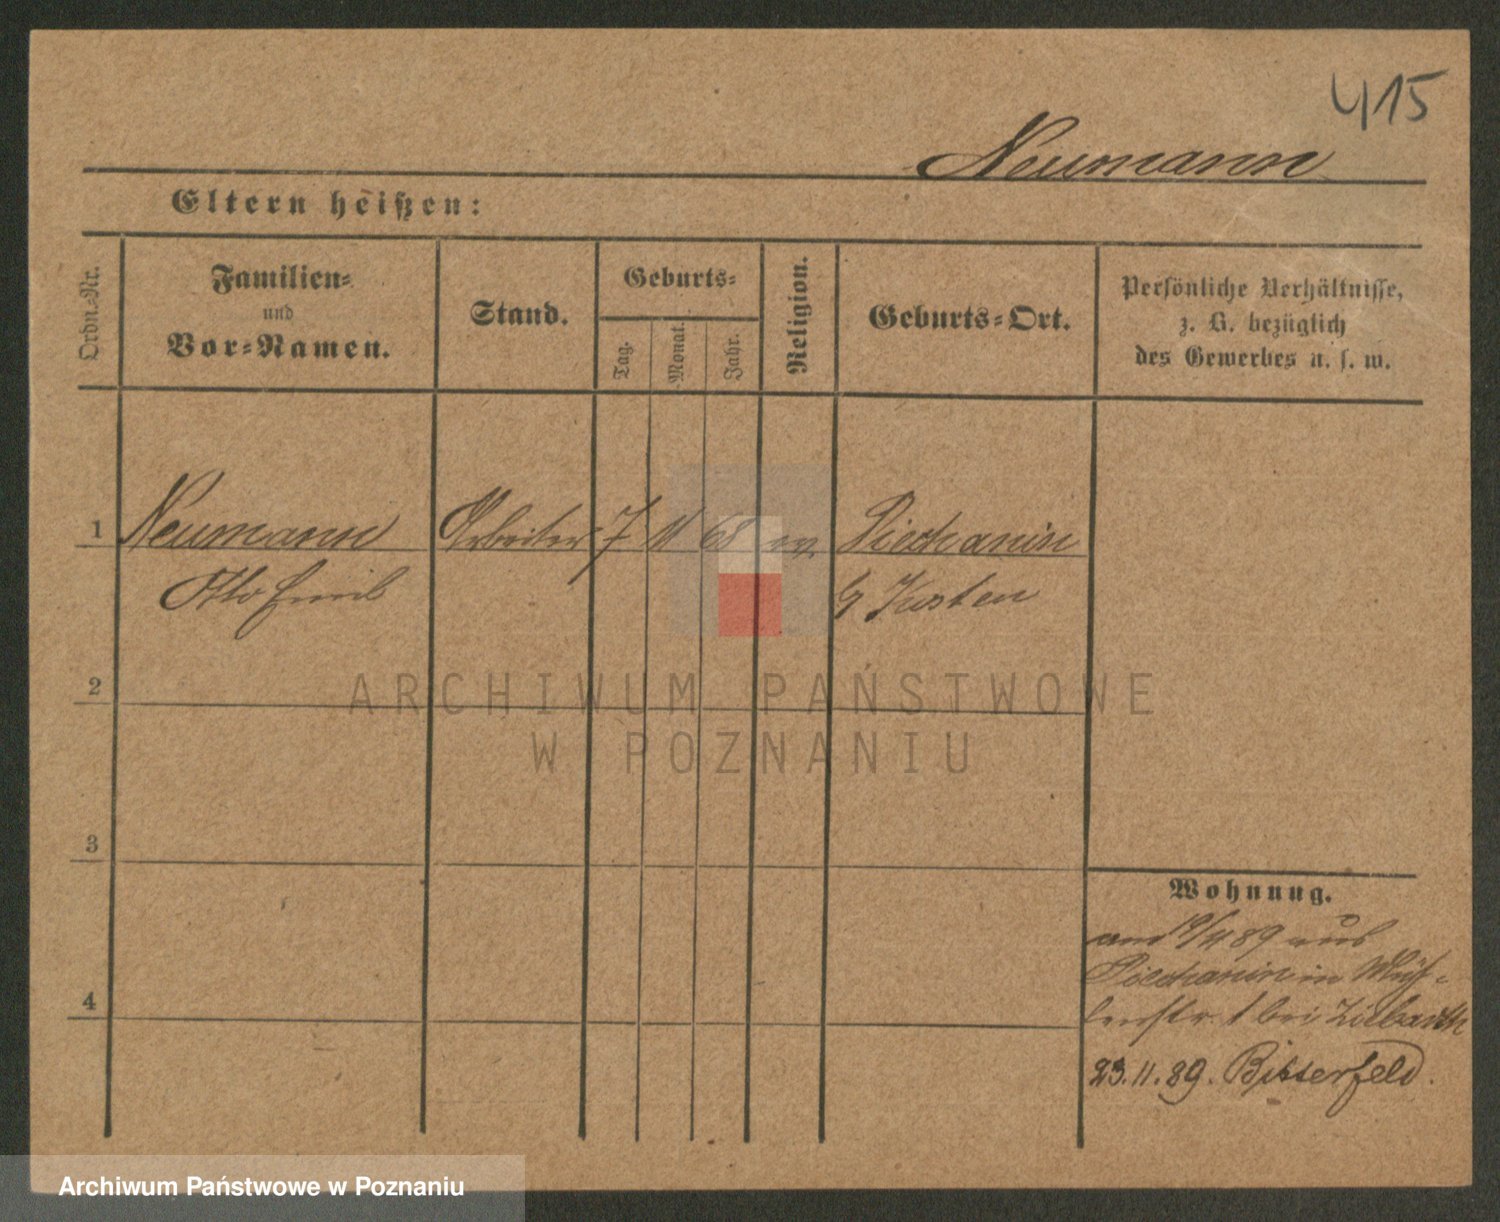 415
Neumann
Eltern heißen:
Ordn.-Nr.
Familien-
und
Vor-Namen.
Stand.
Geburts-
Tag.
Monat.
Jahr.
Religion.
Geburts-Ort.
Persönliche Verhältnisse,
z. B. bezüglich
des Gewerbes u. s. w.
1 Neumann Arbeiter 7 11 68 ev. Piechanin
Otto Emil Kr Kosten
2
3
4
Wohnung.
am 19/4 89 aus
Piechanin in Müh-
lenstr. 1 bei
23.11.89. Bitterfeld.
ARCHIWUM PAŃSTWOWE
W POZNANIU
Archiwum Państwowe w Poznaniu